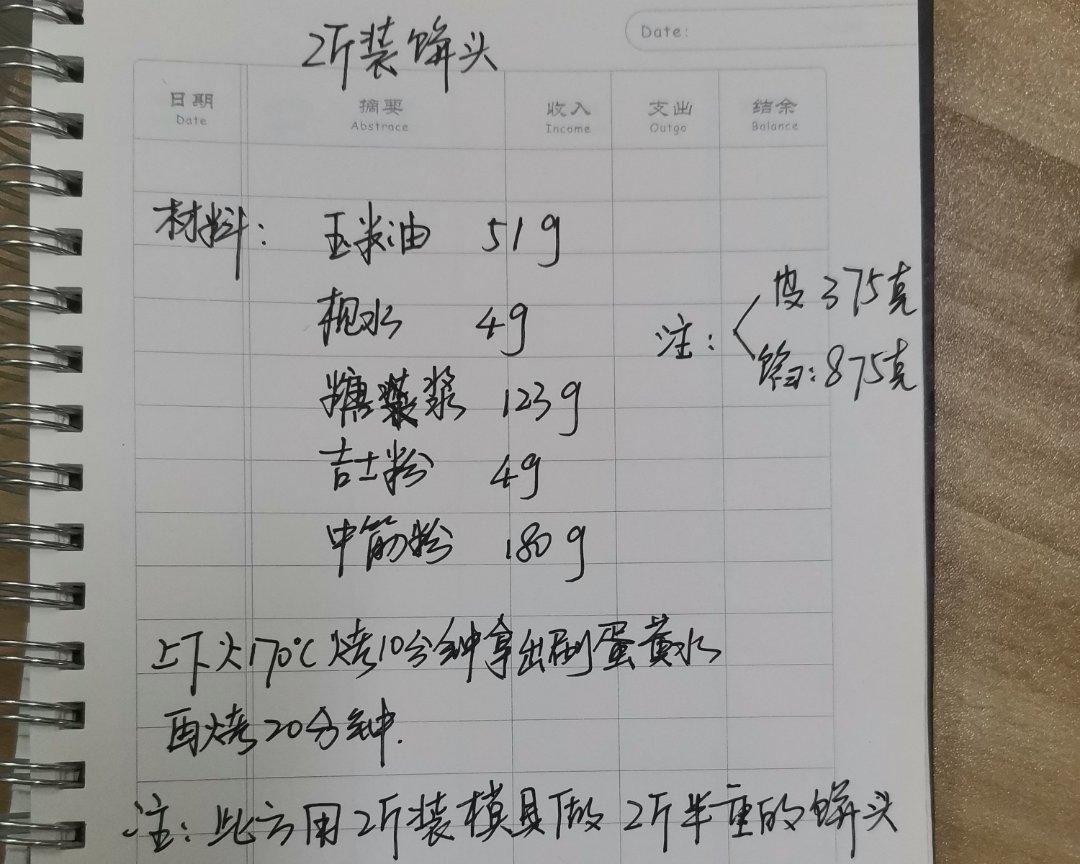 2斤装饼头
Date:
日期 摘要 收入 支出 结余
Date Abstrace Income Outgo Balance
材料: 玉米油 51g
枧水 4g
糖浆 123g
吉士粉 4g
中筋粉 180g
注: 皮375克
馅:875克
上下火170℃烤10分钟拿出刷蛋黄水
再烤20分钟.
注:此方用2斤装模具做2斤半重的饼头